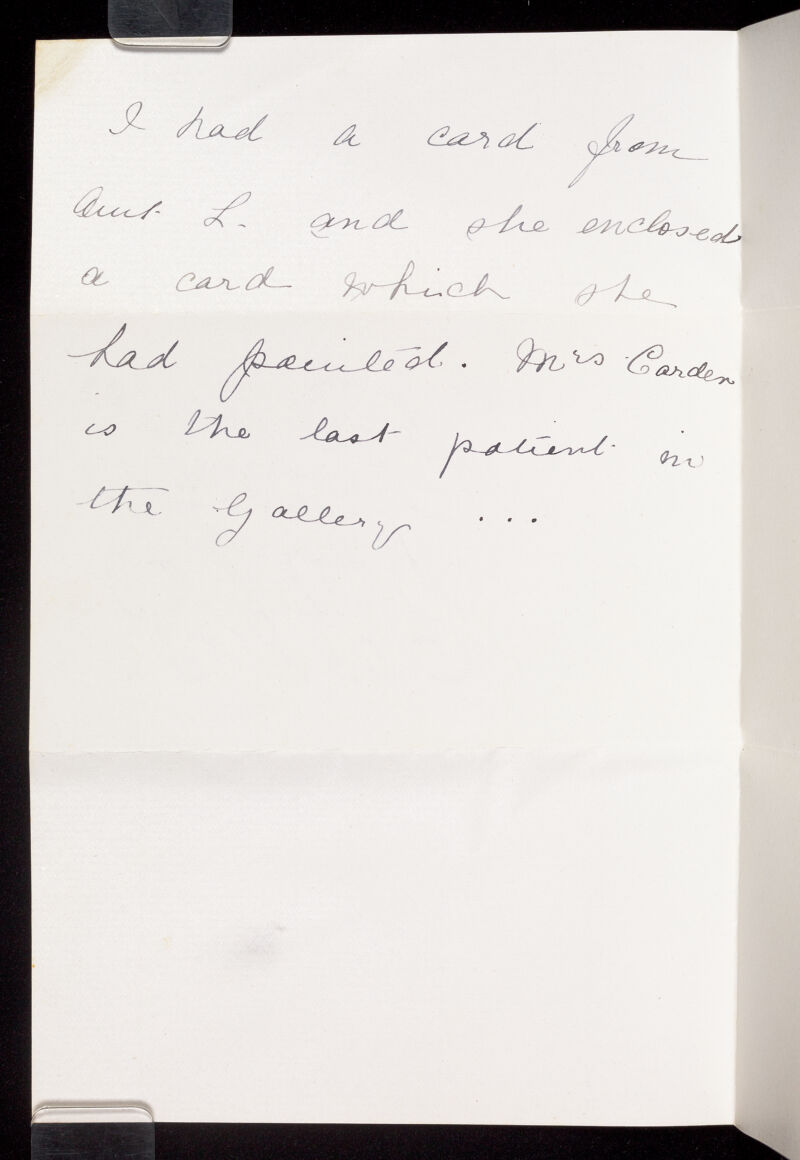 I had a card from
Aunt L. and she enclosed
a card which she
had painted. Mrs Carden
is the last patient in
the Gallery ...